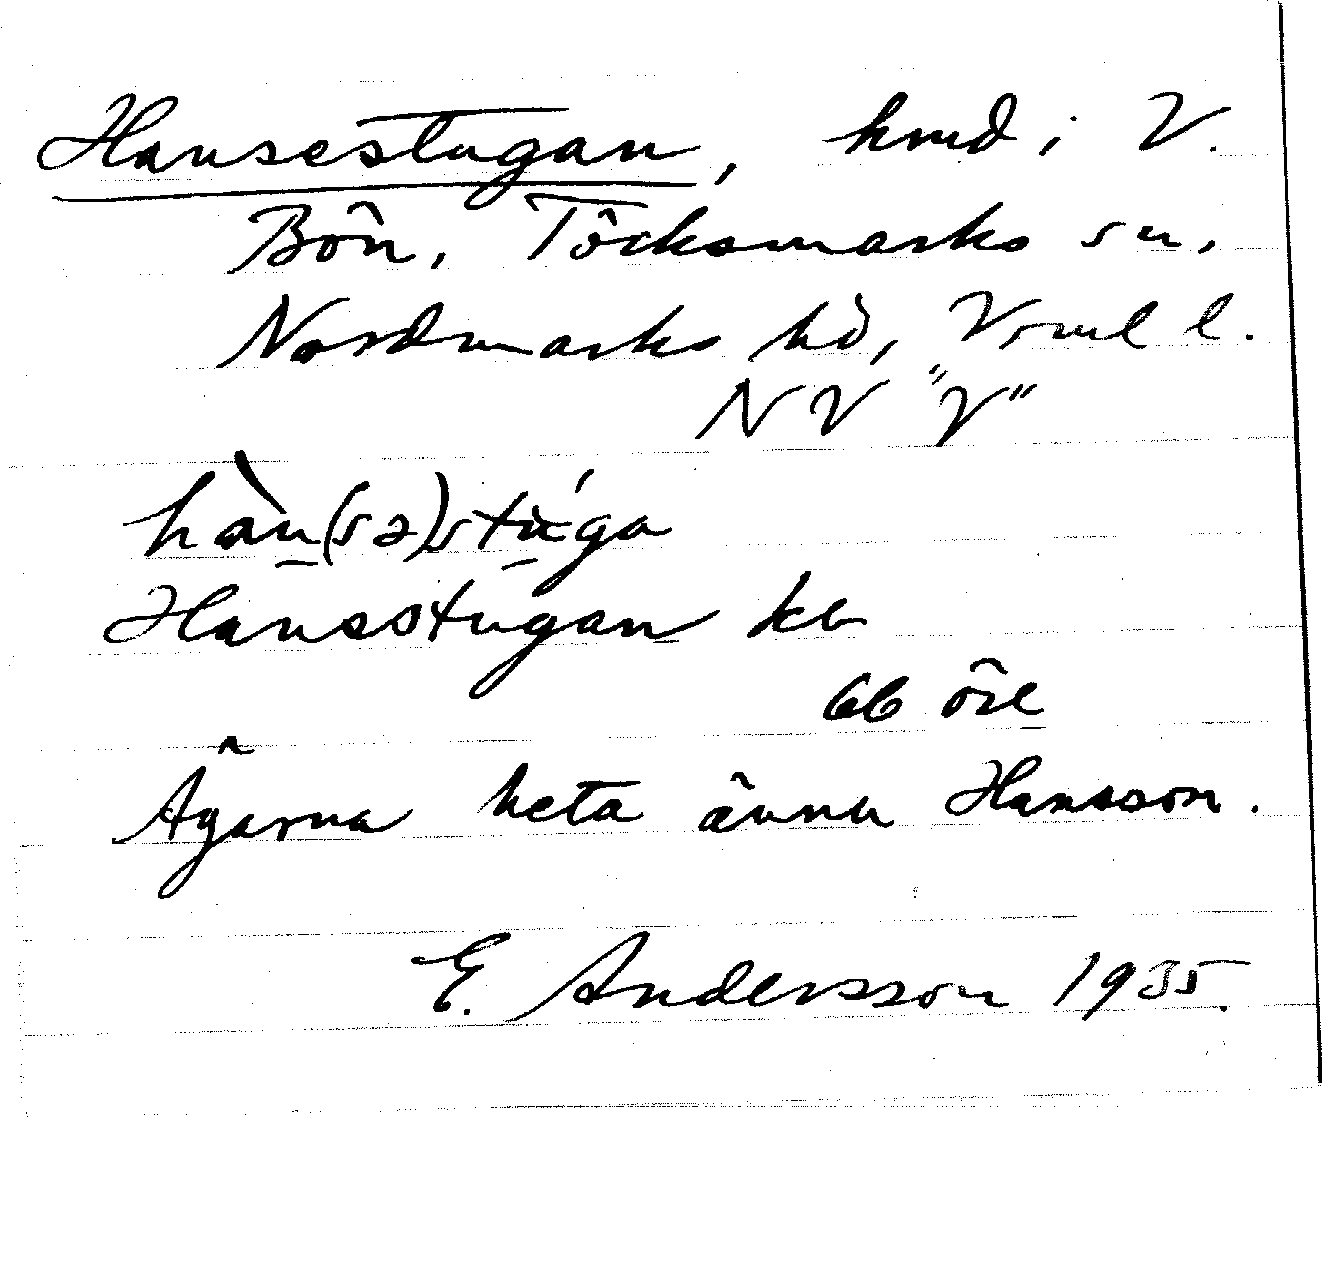 Hansestugan, hmd i V.
Bön, Töcksmarks sn,
Nordmarks hd, Vrml l.
NV "V"
hàn(sə)stúga
Hansstugan kb
bb öre
Ägarna heta ännu Hansson.
E. Andersson 1935.